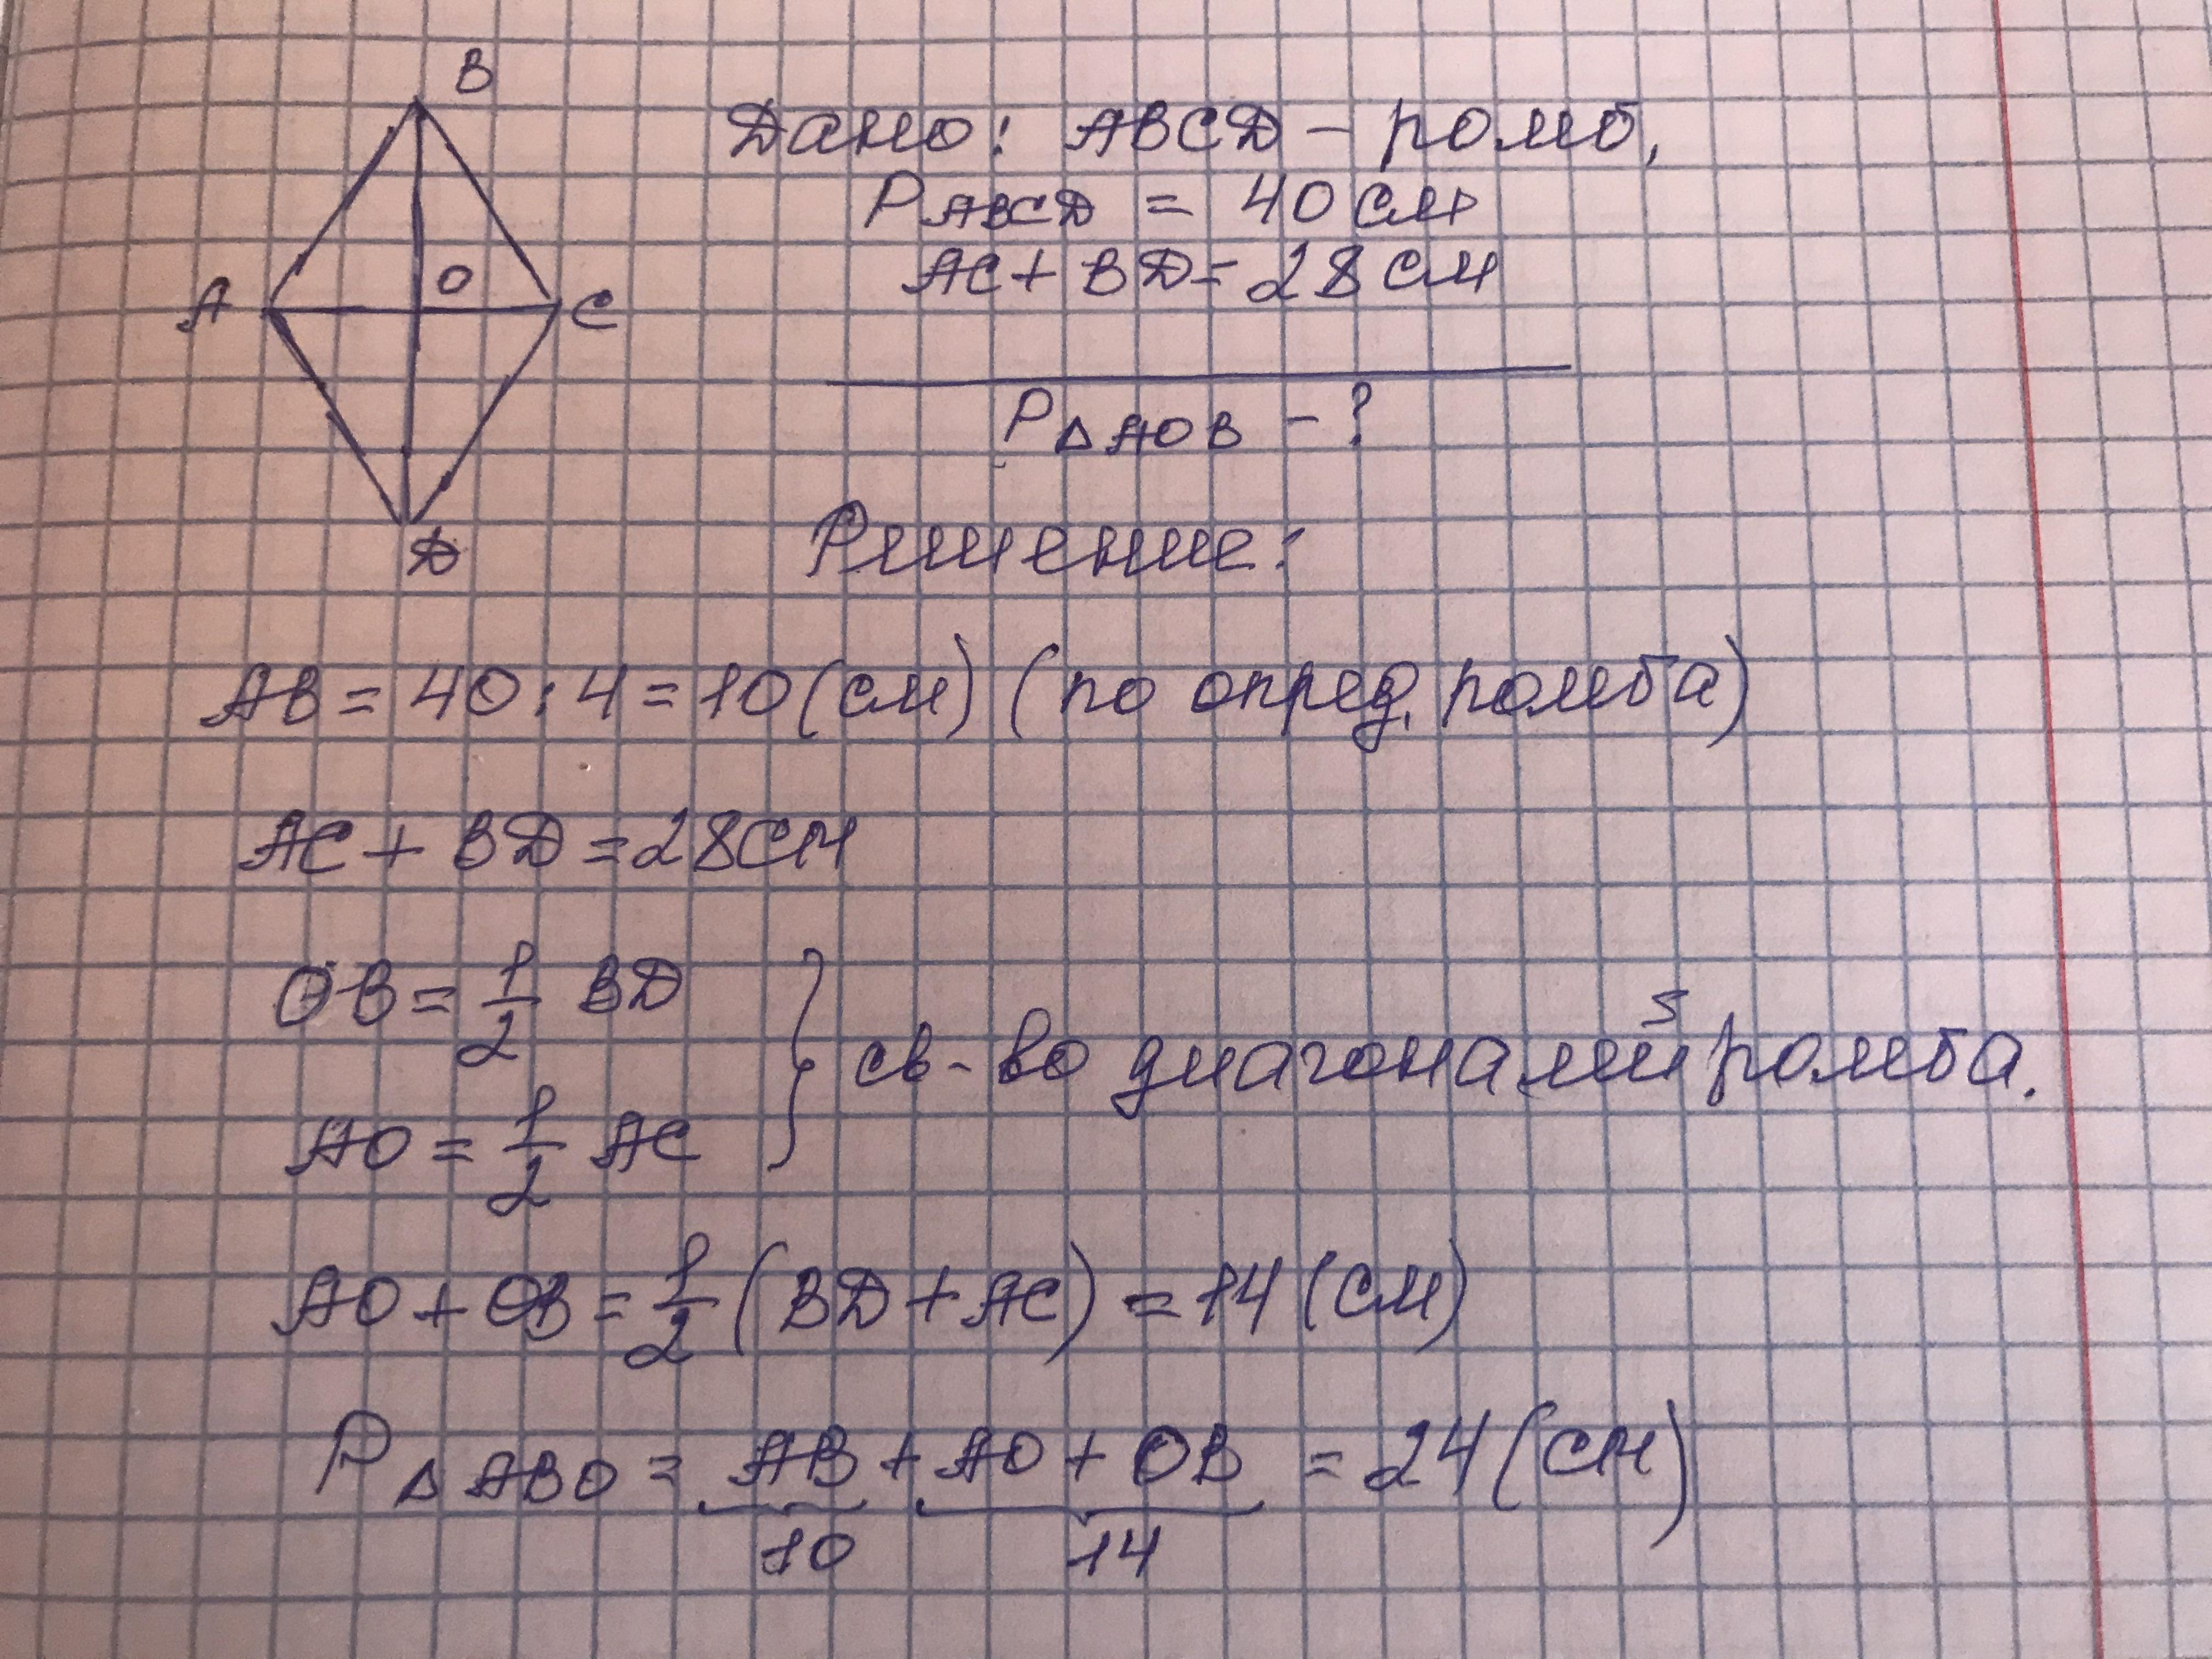 B
Дано: ABCD – ромб,
P ABCD = 40 см
A
O
C
AC + BD = 28 см
P △ AOB – ?
D
Решение:
AB = 40 : 4 = 10 (см) (по опред. ромба)
AC + BD = 28 см
OB = 1/2 BD
св-во диагоналей ромба.
AO = 1/2 AC
AO + OB = 1/2 (BD + AC) = 14 (см)
P △ ABO = AB + AO + OB = 24 (см)
10 14